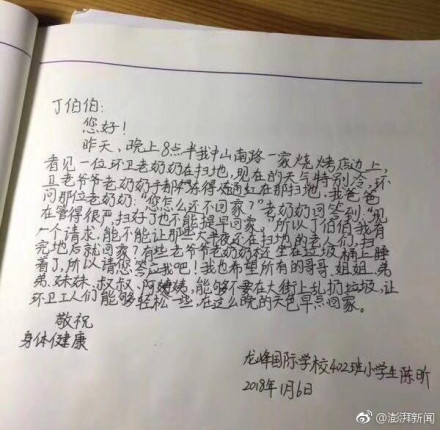 丁伯伯:
您好!
昨天、晚上8点半我中山南路一家烧烤店边上,
看见一位环卫老奶奶在扫地,现在的天气特别冷,环
且老爷爷老奶奶手都冻得通红在那扫地,我爸爸
问那位老奶奶:“您怎么还不回家?”老奶奶回答到:“现
在管得很严扫好了也不能提早回家。”所以丁伯伯我有
一个请求,能不能让那些大半夜还在扫地的老人们,扫
完地后就回家?有些老爷爷老奶奶坐在垃圾桶上睡
着了,所以请您答应我吧!我也希望所有的哥哥、姐姐、弟
弟、妹妹、叔叔、阿姨,能够不要在大街上乱扔垃圾,让
环卫工人们能够轻松一些,在这么晚的天色早点回家。
敬祝
身体健康
龙峰国际学校402班小学生陈昕
2018年1月6日
@澎湃新闻